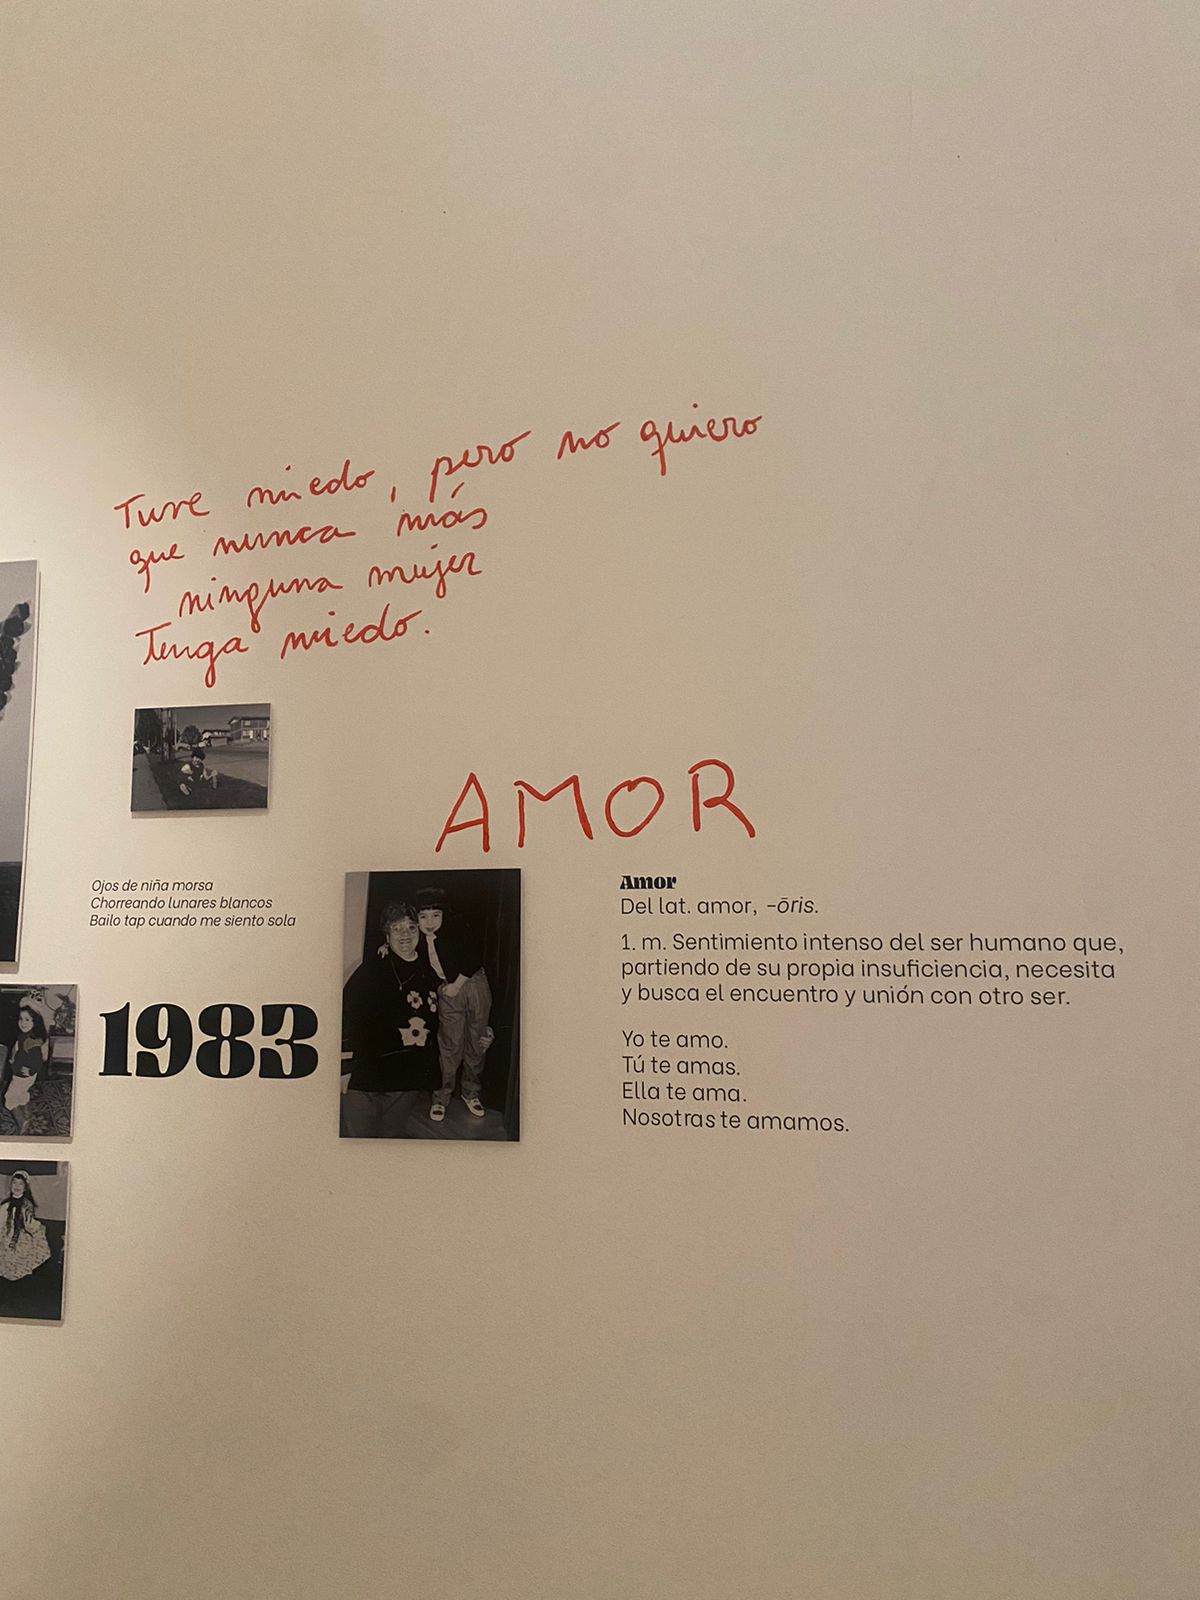 Tuve miedo, pero no quiero
que nunca más
ninguna mujer
Tenga miedo.
AMOR
Ojos de niña morsa
Chorreando lunares blancos
Bailo tap cuando me siento sola
1983
Amor
Del lat. amor, -ōris.
1. m. Sentimiento intenso del ser humano que,
partiendo de su propia insuficiencia, necesita
y busca el encuentro y unión con otro ser.
Yo te amo.
Tú te amas.
Ella te ama.
Nosotras te amamos.